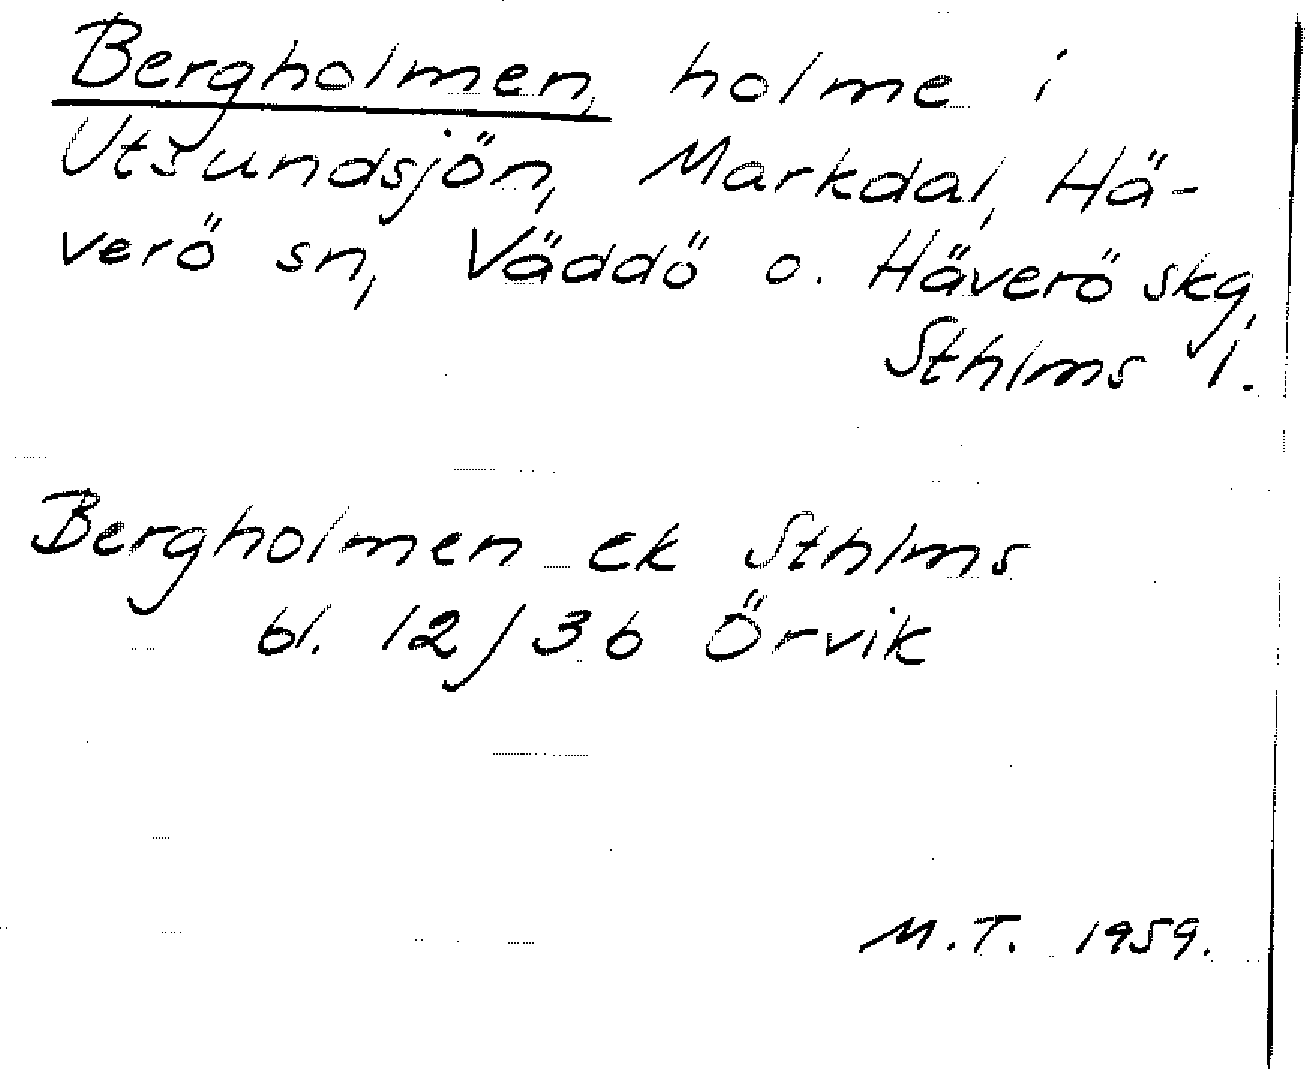 Bergholmen, holme i
Utsundsjön, Markdal, Hä-
verö sn, Väddö o. Häverö skg,
Sthlms l.
Bergholmen ek Sthlms
bl. 12/36 Örvik
M.T. 1959.